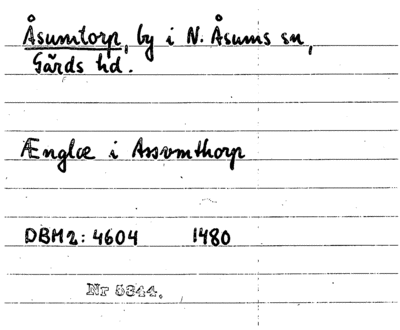 Åsumtorp, by i N. Åsums sn,
Gärds hd.
Ænglæ i Assvmthorp
DBM2: 4604 1480
Nr 5344.